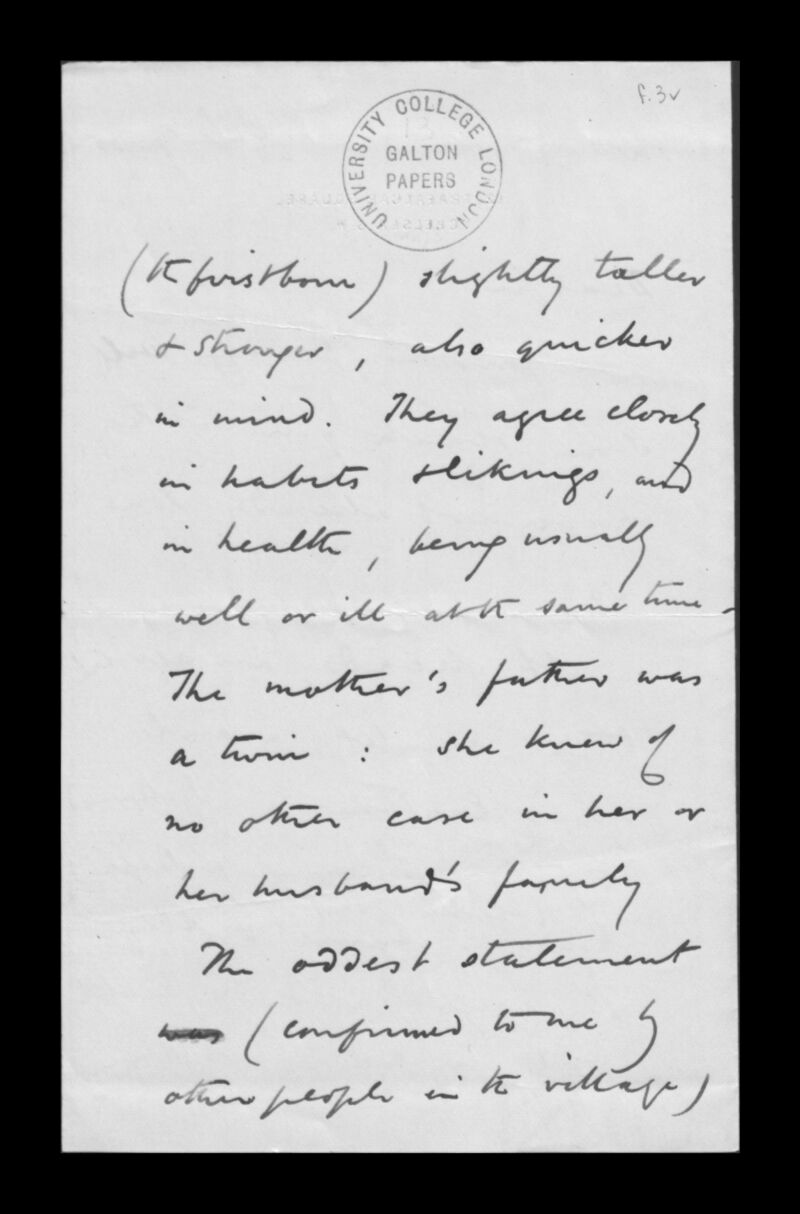 f.3v
UNIVERSITY COLLEGE LONDON
GALTON
PAPERS
(the firstborn) slightly taller
& stronger, also quicker
in mind. They agree closely
in habits & likings, and
in health, being usually
well or ill at the same time.
The mother's father was
a twin : she knew of
no other case in her or
her husband's family
The oddest statement
was (confirmed to me by
other people in the village)